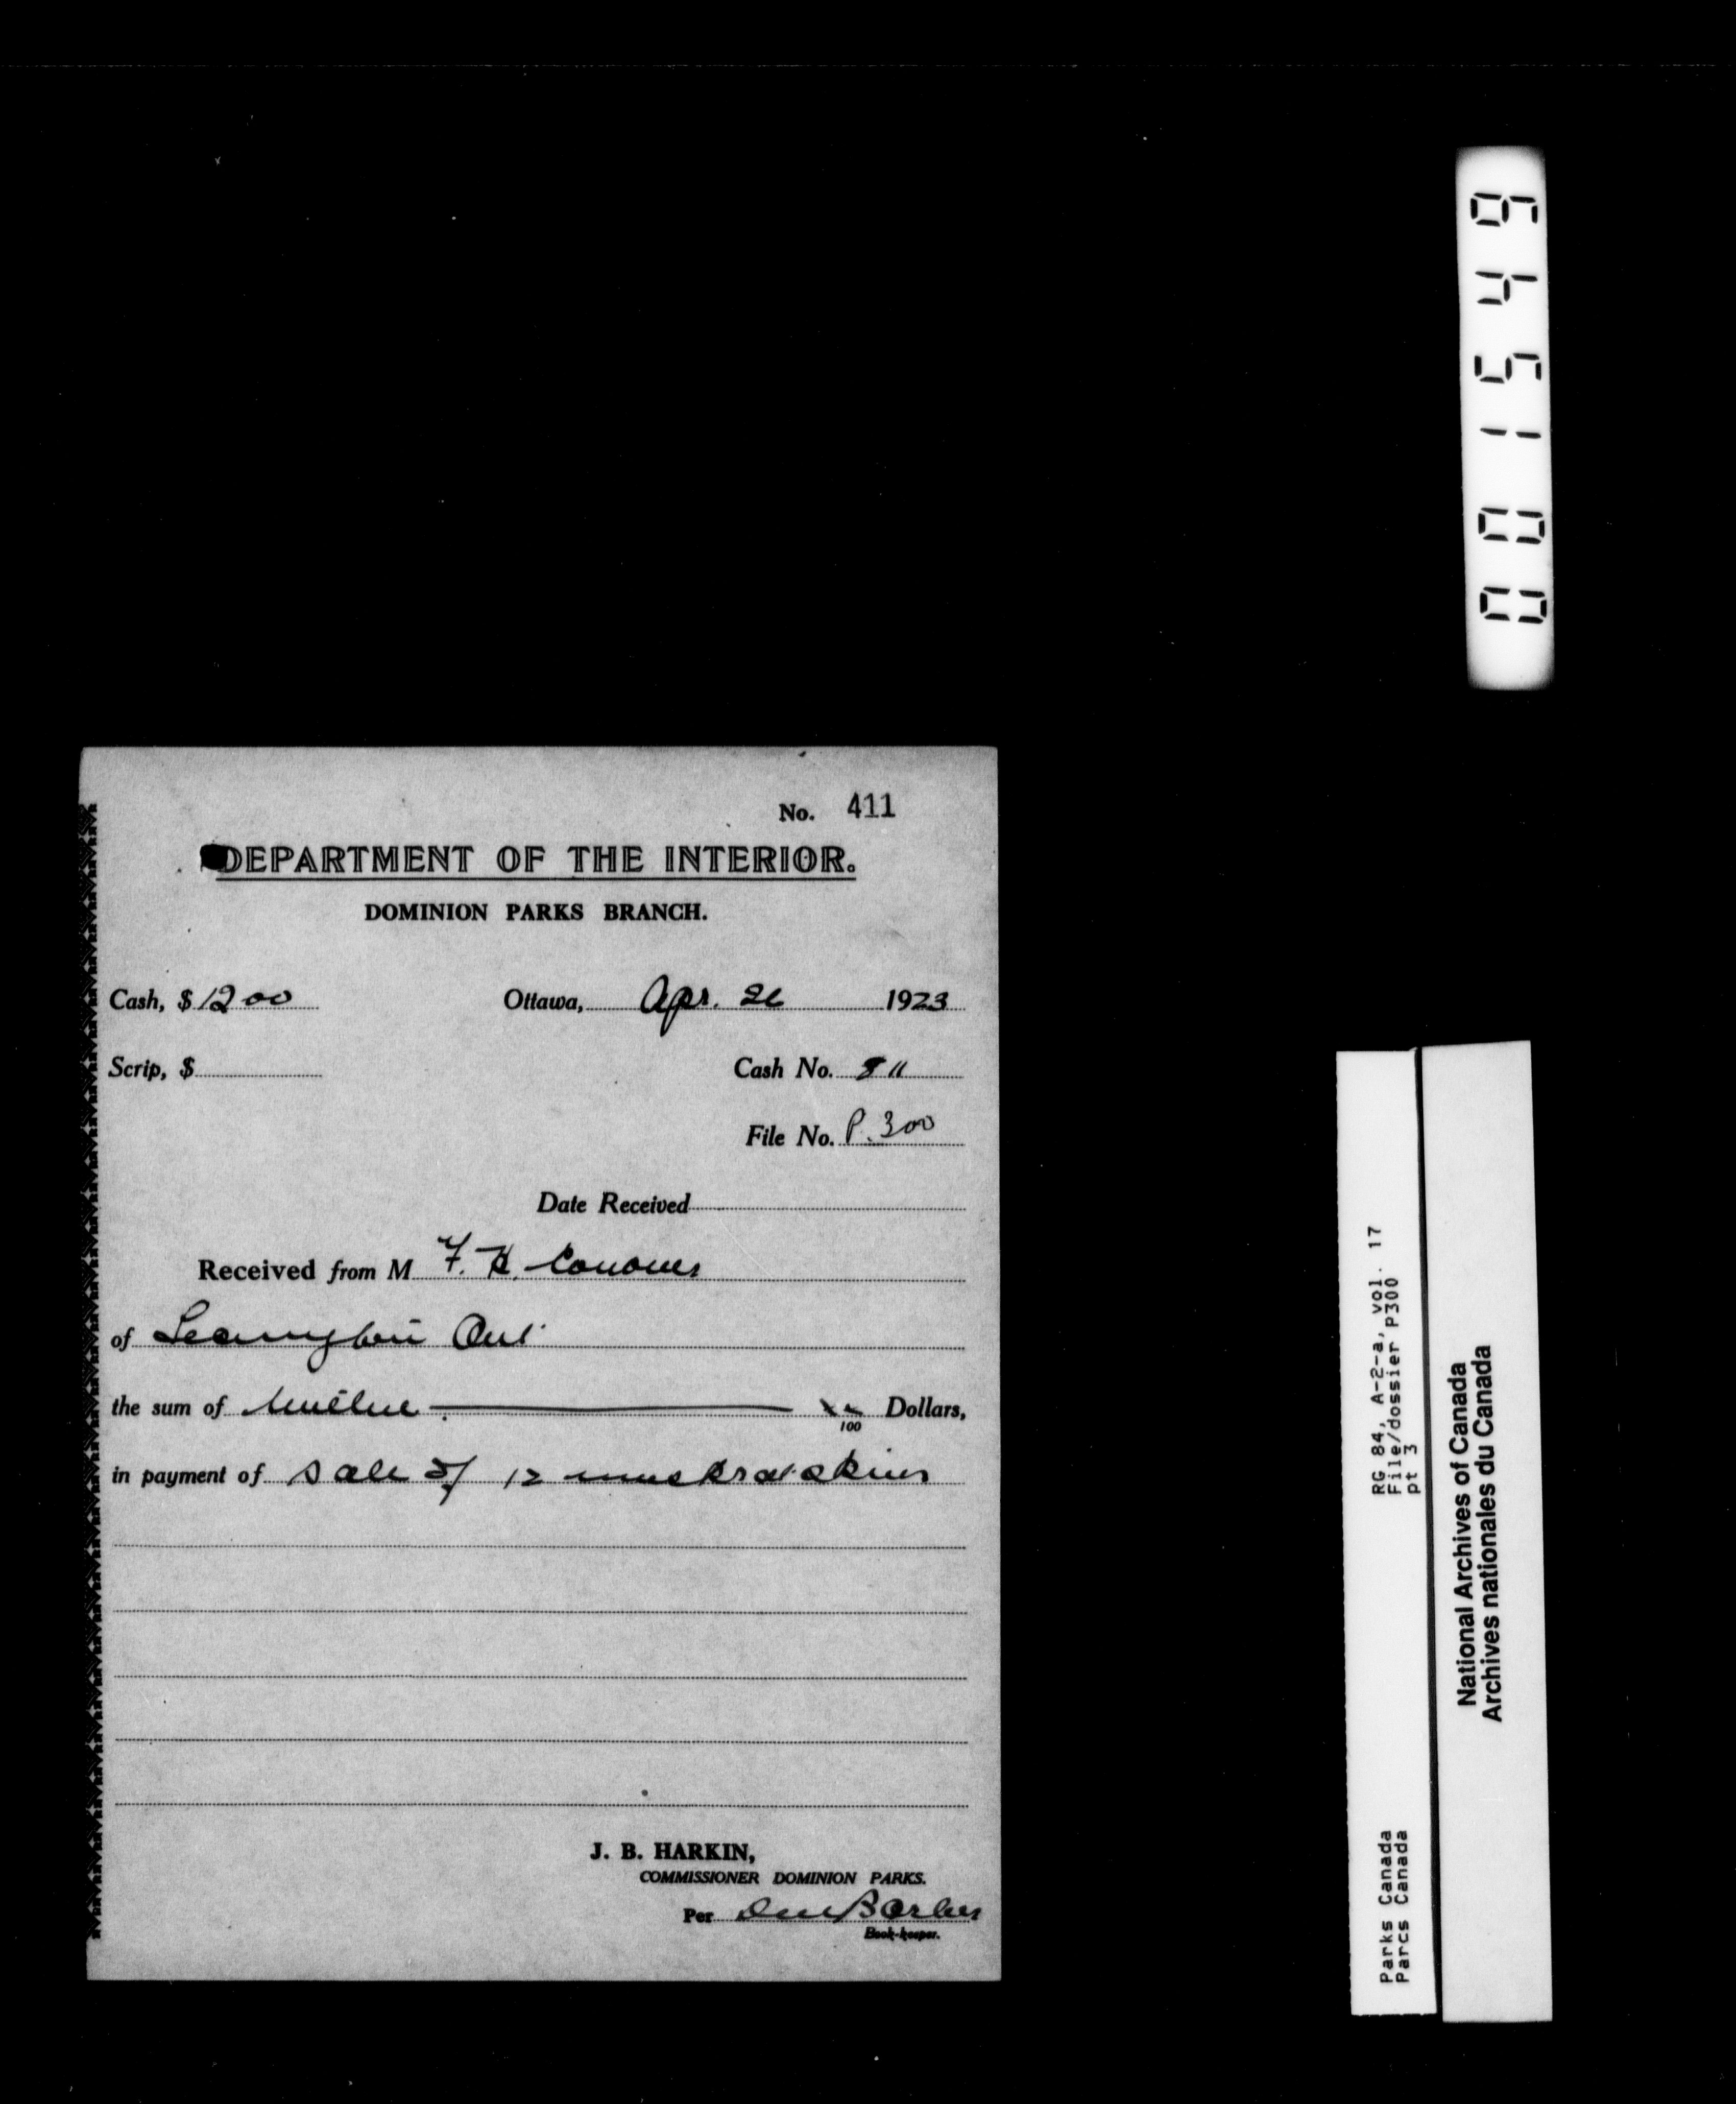 No. 411
DEPARTMENT OF THE INTERIOR.
DOMINION PARKS BRANCH.
Cash, $ 12 00 Ottawa, Apr. 26 1923
Scrip, $
Cash No. 811
File No. P. 300
Date Received
Received from M F. H. Conover
of Leamington Ont
the sum of twelve xx/100 Dollars,
in payment of sale of 12 muskrat skins
J. B. HARKIN,
COMMISSIONER DOMINION PARKS.
Per Barber
Book-keeper.
001549
RG 84, A-2-a, vol. 17
File/dossier P300
pt 3
Parks Canada
Parcs Canada
National Archives of Canada
Archives nationales du Canada